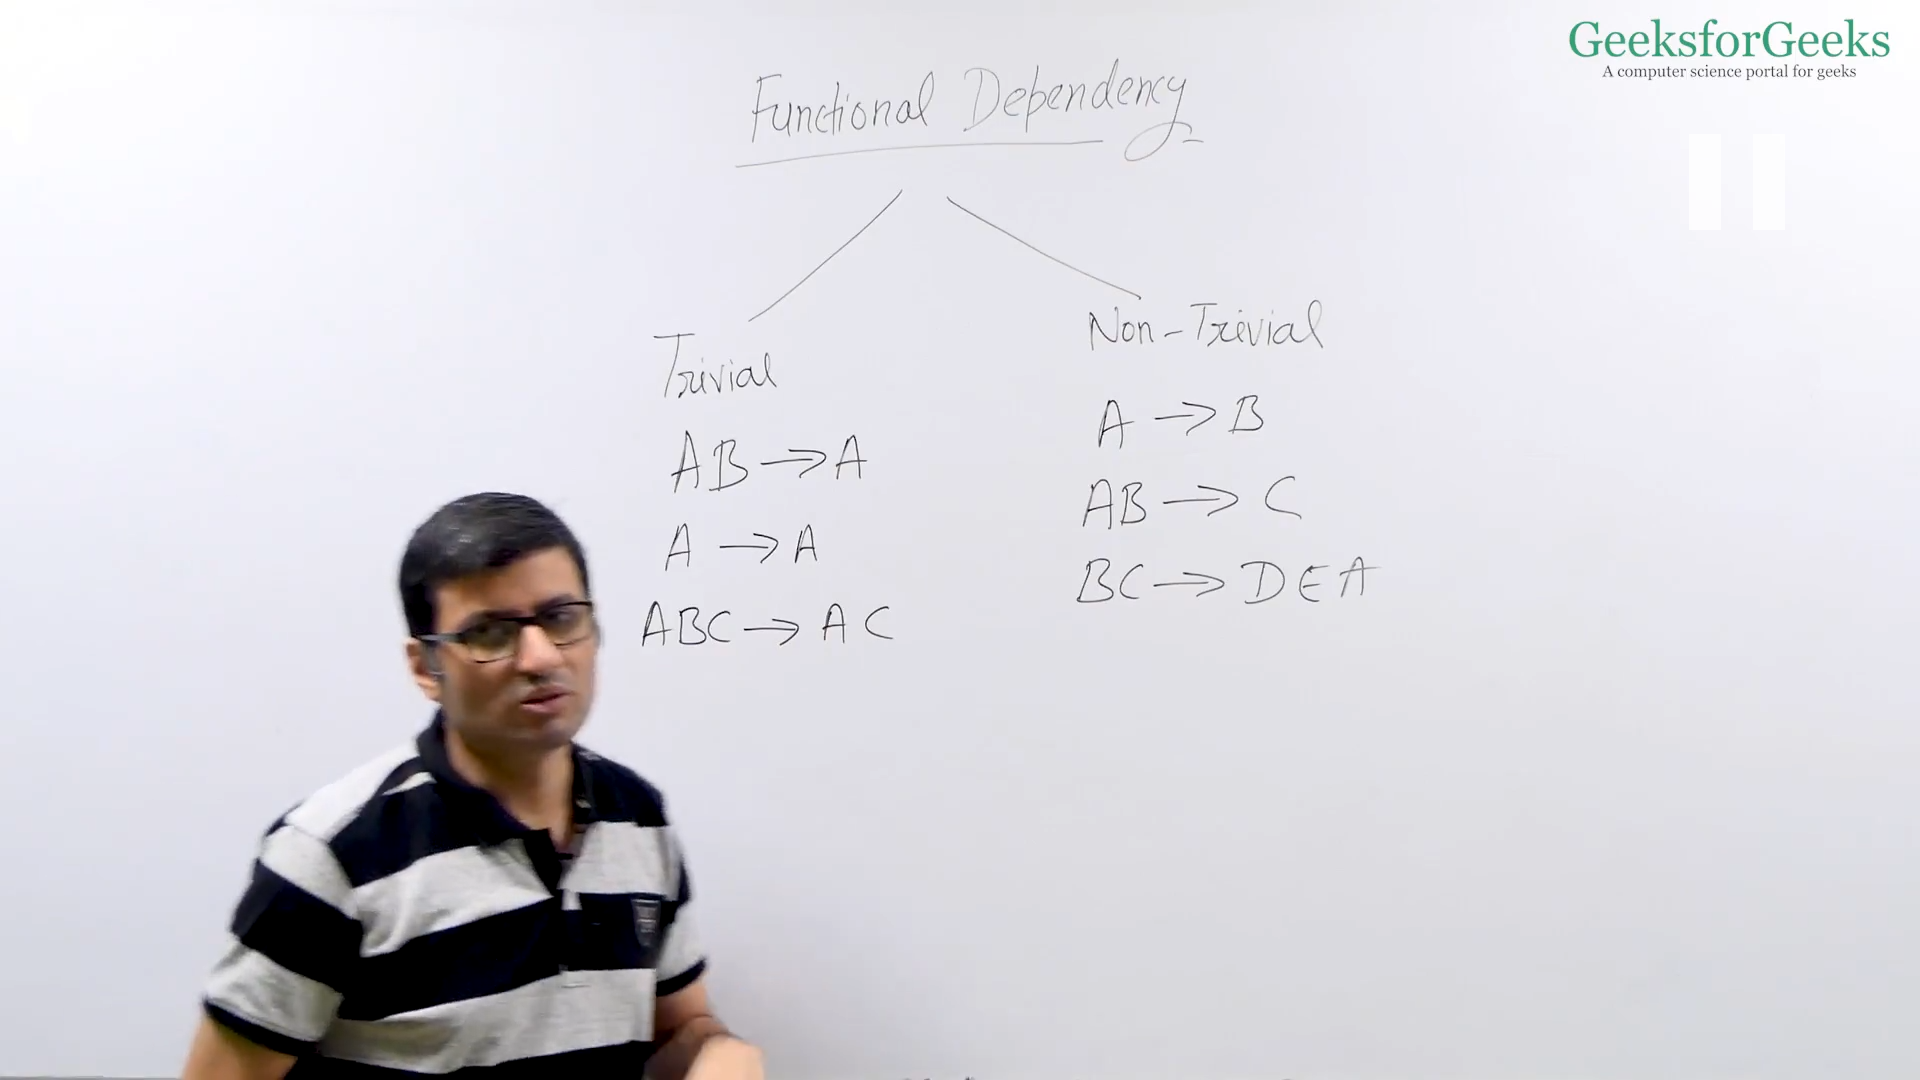 GeeksforGeeks
A computer science portal for geeks
Functional Dependency
Trivial
AB → A
A → A
ABC → AC
Non-Trivial
A → B
AB → C
BC → DEA